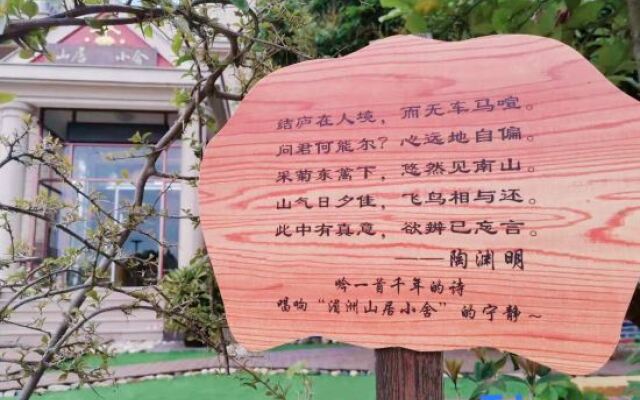 山居小舍
结庐在人境，而无车马喧。
问君何能尔？心远地自偏。
采菊东篱下，悠然见南山。
山气日夕佳，飞鸟相与还。
此中有真意，欲辨已忘言。
——陶渊明
吟一首千年的诗
唱响“湄洲山居小舍”的宁静~